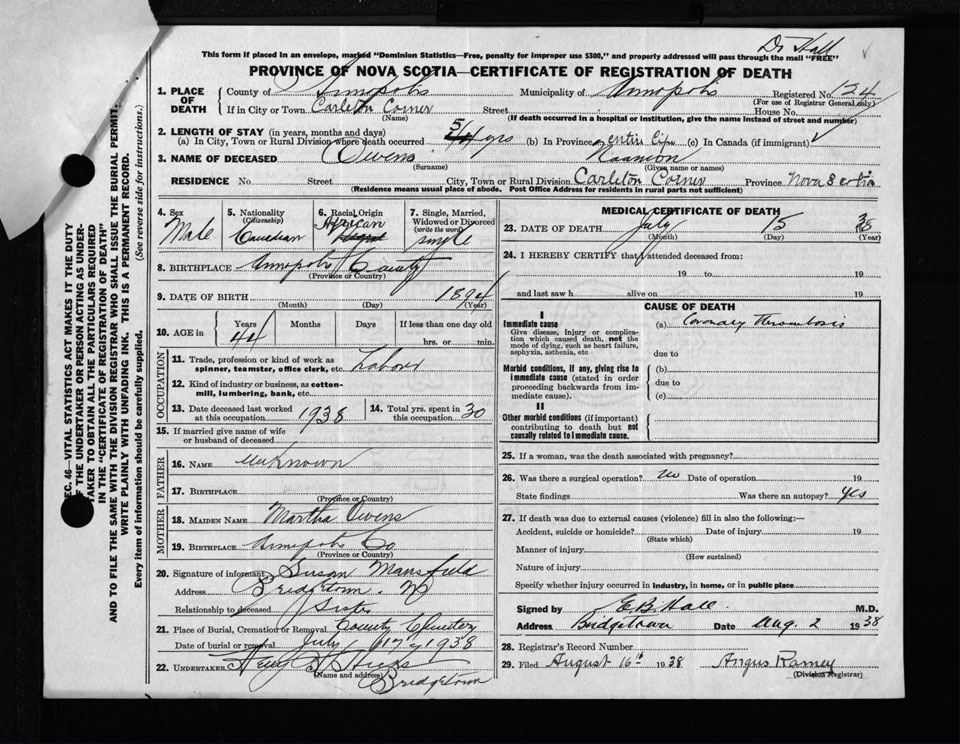 Dr Hall
This form if placed in an envelope, marked "Dominion Statistics—Free, penalty for improper use $300," and properly addressed will pass through the mail "FREE"
PROVINCE OF NOVA SCOTIA—CERTIFICATE OF REGISTRATION OF DEATH
1. PLACE OF DEATH
County of Annapolis Municipality of Annapolis Registered No. 124
(For use of Registrar General only)
If in City or Town Carleton Corner Street House No.
(Name) (If death occurred in a hospital or institution, give the name instead of street and number)
2. LENGTH OF STAY (in years, months and days)
(a) In City, Town or Rural Division where death occurred yrs (b) In Province entire life (c) In Canada (if immigrant)
3. NAME OF DECEASED Owens Naamon
(Surname) (Given name or names)
RESIDENCE No. Street City, Town or Rural Division Carleton Corner Province Nova Scotia
(Residence means usual place of abode. Post Office Address for residents in rural parts not sufficient)
4. Sex
Male
5. Nationality
(Citizenship)
Canadian
6. Racial Origin
African
7. Single, Married,
Widowed or Divorced
(write the word)
single
8. BIRTHPLACE Annapolis County
(Province or Country)
9. DATE OF BIRTH 1894
(Month) (Day) (Year)
10. AGE in
Years Months Days If less than one day old
44 hrs. or min.
OCCUPATION
11. Trade, profession or kind of work as
spinner, teamster, office clerk, etc. Laborer
12. Kind of industry or business, as cotton-
mill, lumbering, bank, etc.
13. Date deceased last worked
at this occupation 1938
14. Total yrs. spent in
this occupation 30
15. If married give name of wife
or husband of deceased
FATHER
16. NAME Unknown
17. BIRTHPLACE
(Province or Country)
MOTHER
18. MAIDEN NAME Martha Owens
19. BIRTHPLACE Annapolis Co
(Province or Country)
20. Signature of informant Susan Mansfield
Address Bridgetown. NS
Relationship to deceased Sister
21. Place of Burial, Cremation or Removal County Cemetery
Date of burial or removal July 17 1938
22. UNDERTAKER Hicks
(Name and address)
Bridgetown
MEDICAL CERTIFICATE OF DEATH
23. DATE OF DEATH July 15 38
(Month) (Day) (Year)
24. I HEREBY CERTIFY that I attended deceased from:
19 to 19
and last saw h alive on 19
CAUSE OF DEATH
I
Immediate cause (a) Coronary thrombosis
Give disease, injury or complica-
tion which caused death, not the
mode of dying, such as heart failure,
asphyxia, asthenia, etc
due to
Morbid conditions, if any, giving rise to
immediate cause (stated in order
proceeding backwards from im-
mediate cause).
(b)
due to
(c)
II
Other morbid conditions (if important)
contributing to death but not
causally related to immediate cause.
25. If a woman, was the death associated with pregnancy?
26. Was there a surgical operation? No Date of operation 19
State findings Was there an autopsy? Yes
27. If death was due to external causes (violence) fill in also the following:—
Accident, suicide or homicide? Date of injury 19
(State which)
Manner of injury
(How sustained)
Nature of injury
Specify whether injury occurred in industry, in home, or in public place
Signed by E. B. Hall M.D.
Address Bridgetown Date Aug. 2 1938
28. Registrar's Record Number
29. Filed August 16th 1938 Angus Ramey
(Division Registrar)
EC. 46—VITAL STATISTICS ACT MAKES IT THE DUTY
OF THE UNDERTAKER OR PERSON ACTING AS UNDER-
TAKER TO OBTAIN ALL THE PARTICULARS REQUIRED
IN THE "CERTIFICATE OF REGISTRATION OF DEATH"
AND TO FILE THE SAME WITH THE DIVISION REGISTRAR WHO SHALL ISSUE THE BURIAL PERMIT.
WRITE PLAINLY WITH UNFADING INK. THIS IS A PERMANENT RECORD.
Every item of information should be carefully supplied. (See reverse side for instructions.)